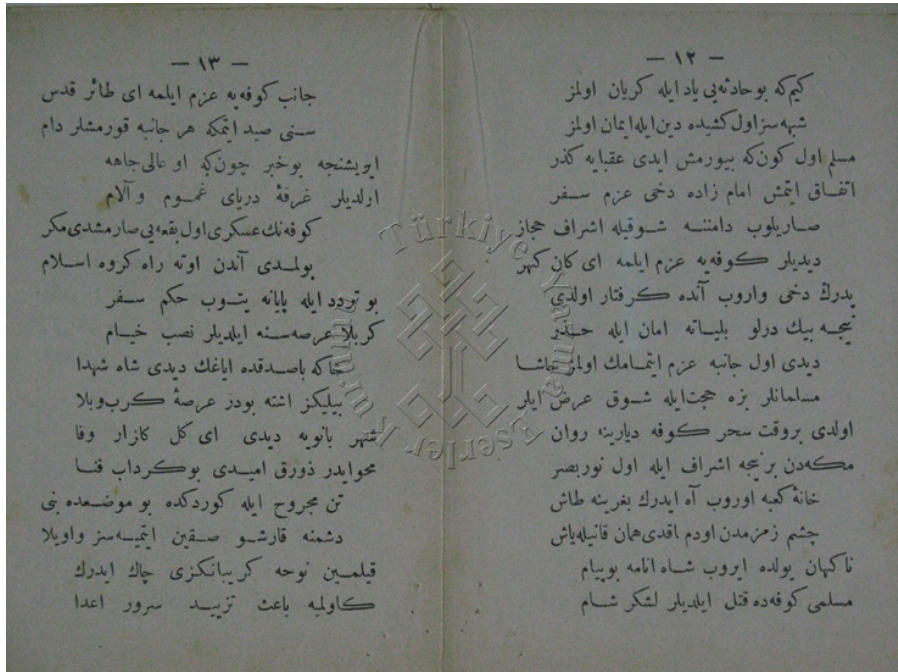 — ١٢ —
كيم كه بو حادثه‌یی یاد ایله كریان اولمز
شبهه‌سز اول كشیده دین ایله ایمان اولمز
مسلم اول كون كه بیورمش ایدی عقبایه كذر
اتفاق ایتمش امام زاده دخی عزم سفر
صاریلوب دامننه شوقیله اشراف حجاز
دیدیلر كوفه‌یه عزم ایلمه ای كان كهر
پدرك دخی واروب آنده كرفتار اولدی
نیجه بیك درلو بلیاته امان ایله حذر
دیدی اول جانبه عزم ایتمامك اولمز حاشا
مسلمانلر بزه حجت‌ایله شوق عرض ایلر
اولدی بروقت سحر كوفه دیارینه روان
مكه‌دن بر نیجه اشراف ایله اول نوربصر
خانهٔ كعبه اوروب آه ایدرك بغرینه طاش
چشم زمزمدن اودم اقدی همان قانیله یاش
ناكهان یولده ایروب شاه انامه بوپیام
مسلمی كوفه‌ده قتل ایلدیلر لشكر شام
— ١٣ —
جانب كوفه‌یه عزم ایلمه ای طائر قدس
سنی صید ایتمكه هر جانبه قورمشلر دام
ایریشنجه بوخبر چون‌كه او عالی جاهه
اولدیلر غرقهٔ دریای غموم و آلام
كوفه‌نك عسكری اول بقعه‌یی صارمشدی مكر
بولمدی آندن اوته راه كروه اسلام
بو تردد ایله پایانه یتوب حكم سفر
كربلا عرصه‌سنه ایلدیلر نصب خیام
خاكه باصدقده ایاغك دیدی شاه شهدا
بیلیكز اشته بودر عرصهٔ كرب‌وبلا
شهر بانویه دیدی ای كل كلزار وفا
محوایدر ذورق امیدی بوكرداب فنا
تن مجروح ایله كوردكده بو موضعده بنی
دشمنه قارشو صقین ایتمیه‌سز واویلا
قیلمیـن نوحه كریبانكزی چاك ایدرك
كاولمیه باعث تزیید سرور اعدا
Türkiye Yazma Eserler Kurumu